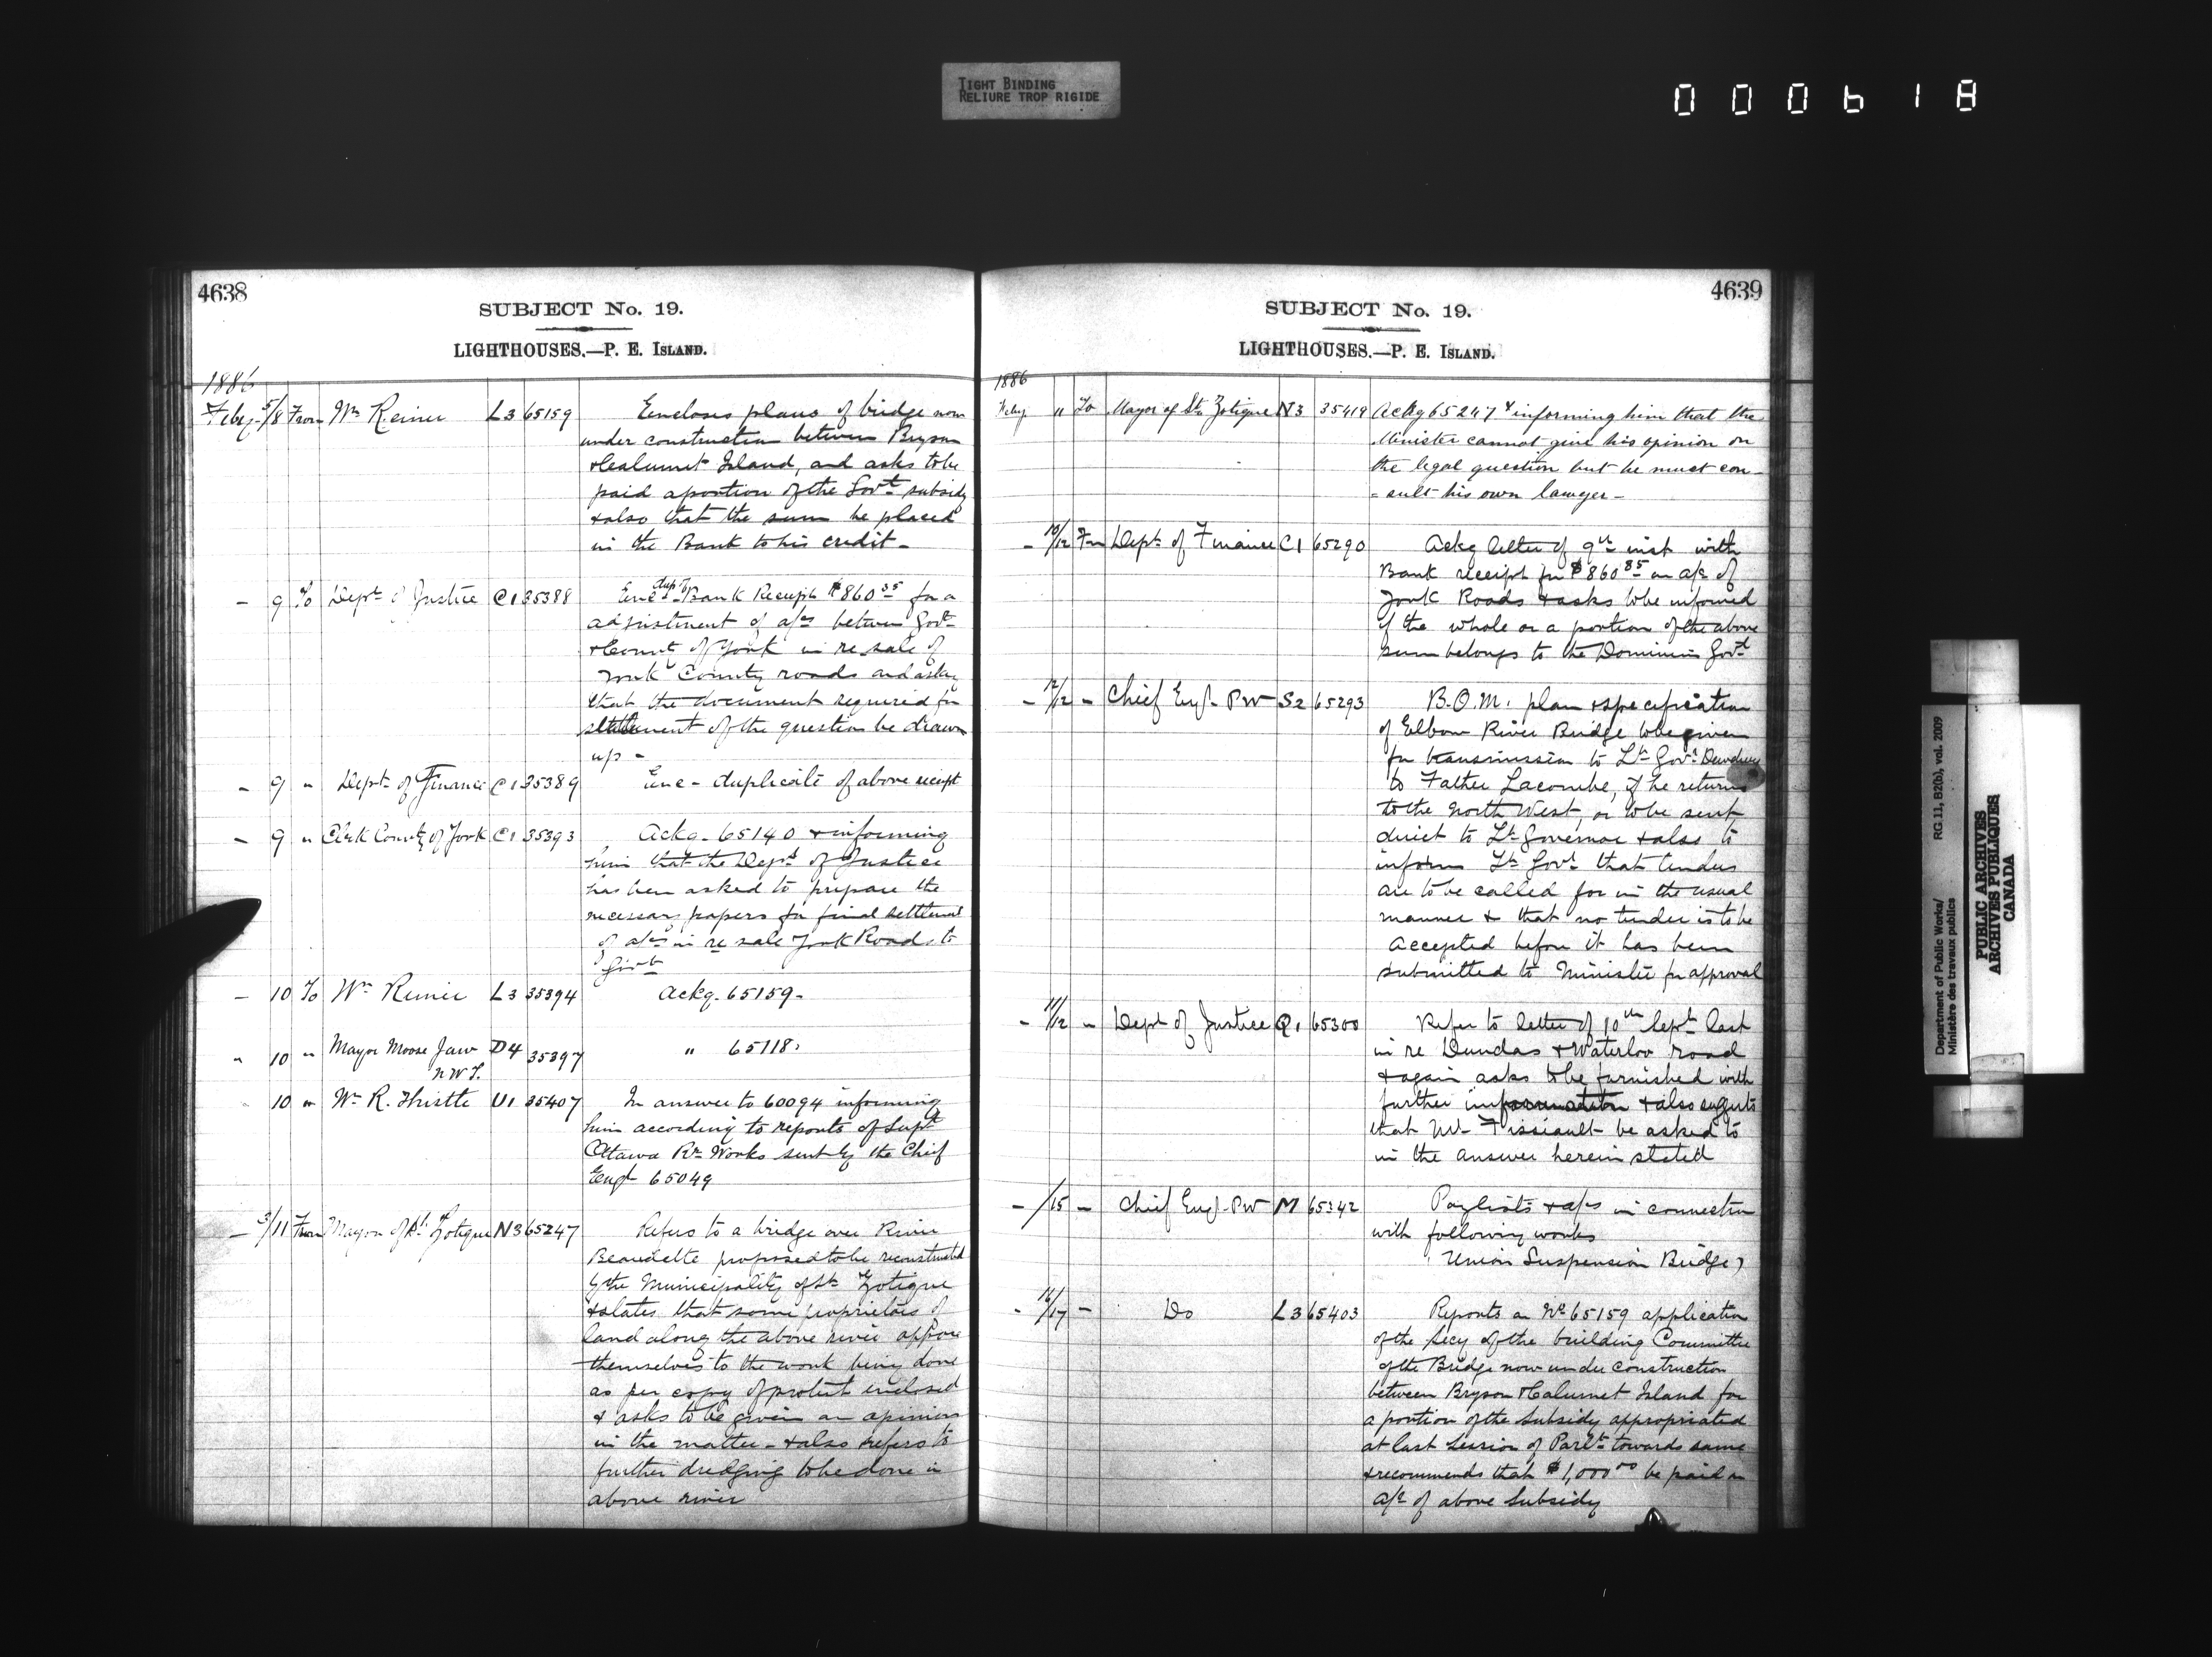 TIGHT BINDING
RELIURE TROP RIGIDE
000618
4638
SUBJECT No. 19.
LIGHTHOUSES.—P. E. ISLAND.
1886
Feby. 5/8 From Wm Reiner L3 65159 Encloses plans of bridge now
under construction between Bryson
& Calumet Island, and asks to be
paid a portion of the Govt subsidy
& also that the sum be placed
in the Bank to his credit -
- 9 To Dept of Justice C1 35388 Encs dup. of Bank Receipt $860 35 for a
adjustment of a/cs between Govt
& County of York in re sale of
York County roads and asking
that the document required for
settlement of the question be drawn
up -
- 9 " Dept of Finance C1 35389 Enc - duplicate of above receipt
- 9 " Clerk County of York C1 35393 Ackg - 65140 & informing
him that the Dept of Justice
has been asked to prepare the
necessary papers for final settlement
of a/cs in re sale York Roads to
Govt
- 10 To Wm Reiner L3 35394 Ackg. 65159 -
" 10 " Mayor Moose Jaw D4 35397 " 65118.
N W T.
10 " Wm R. Thistle U1 35407 In answer to 60094 informing
him according to reports of Supt
Ottawa Rr Works sent by the Chief
Engr 65049
- 3/11 From Mayor of St. Zotique N3 65247 Refers to a bridge over River
Beaudette proposed to be reconstructed
by the Municipality of St. Zotique
& states that some proprietors of
land along the above river oppose
themselves to the work being done
as per copy of protest enclosed
& asks to be given an opinion
in the matter - & also refers to
further dredging to be done in
above river
4639
SUBJECT No. 19.
LIGHTHOUSES.—P. E. ISLAND.
1886
Feby " To Mayor of St. Zotique N3 35419 Ackg 65247 & informing him that the
Minister cannot give his opinion on
the legal question but he must con-
=sult his own lawyer -
- 10/12 Fm Dept of Finance C1 65290 Ackg letter of 9th inst with
Bank receipt for $860 85 on a/c of
York Roads & asks to be informed
if the whole or a portion of the above
sum belongs to the Dominion Govt
- 12/12 - Chief Engr - PW S2 65293 B.O.M. plan & specification
of Elbow River Bridge to be given
for transmission to Lt Govr Dewdney
to Father Lacombe, if he returns
to the North West, or to be sent
direct to Lt Governor & also to
inform Lt Govr that tenders
are to be called for in the usual
manner & that no tender is to be
accepted before it has been
submitted to Minister for approval
- 11/12 " Dept of Justice Q1 65300 Refer to letter of 10th Sept last
in re Dundas & Waterloo road
& again asks to be furnished with
further information & also suggests
that Mr be asked to
in the answer herein stated
- /15 - Chief Engr - PW M 65342 Paylists & a/cs in connection
with following works
Union Suspension Bridge)
- 16/17 - Do L3 65403 Reports on No 65159 application
of the Secy of the building Committee
of the Bridge now under construction
between Bryson & Calumet Island for
a portion of the Subsidy appropriated
at last Session of Parlt towards same
& recommends that $1,000 00 be paid on
a/c of above Subsidy
Department of Public Works/ RG 11, B2(b), vol. 2009
Ministère des travaux publics
PUBLIC ARCHIVES
ARCHIVES PUBLIQUES
CANADA